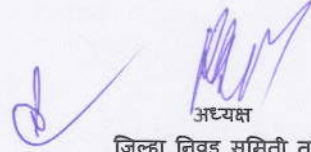 अध्यक्ष
जिल्हा निवड समिती त